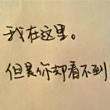 我在这里。
但是你却看不到